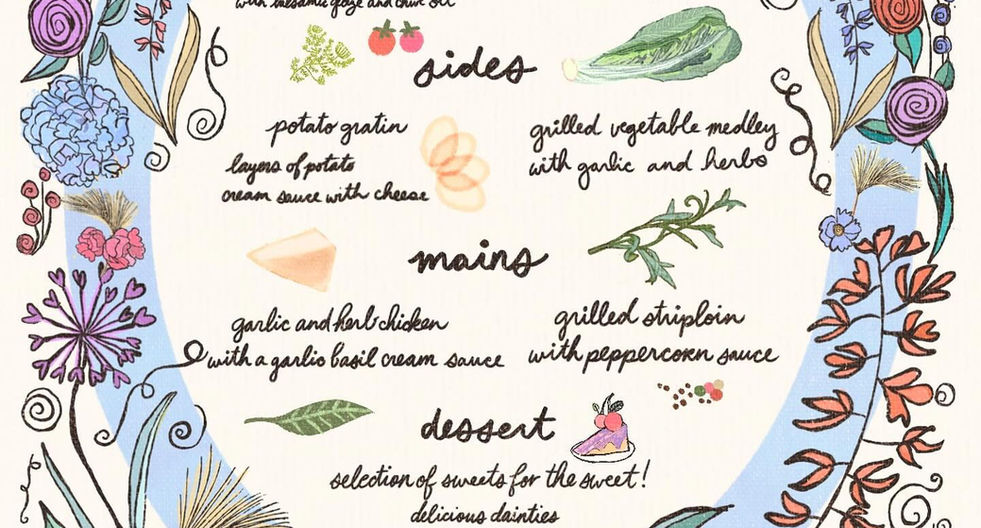 with balsamic glaze and olive oil
sides
potato gratin
layers of potato
cream sauce with cheese
grilled vegetable medley
with garlic and herbs
mains
garlic and herb chicken
with a garlic basil cream sauce
grilled striploin
with peppercorn sauce
dessert
selection of sweets for the sweet!
delicious dainties